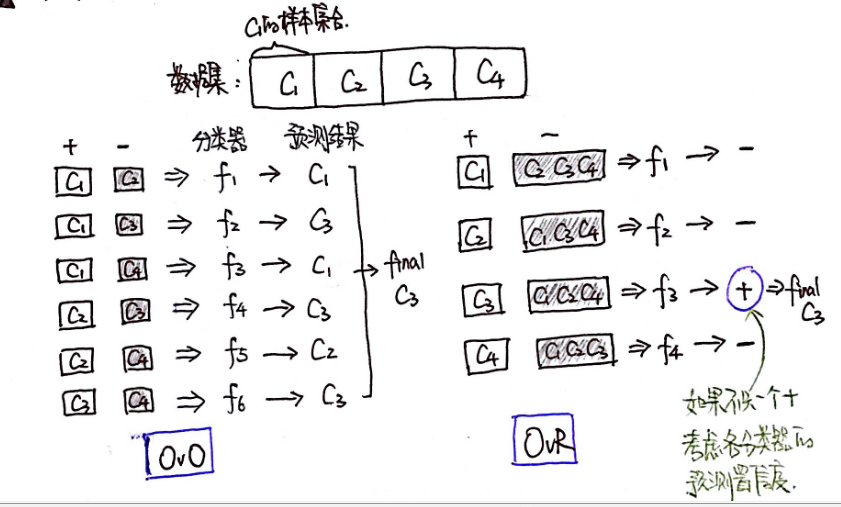 C₁的样本集合.
数据集: C₁ C₂ C₃ C₄
+ - 分类器 预测结果
C₁ C₂ ⇒ f₁ → C₁
C₁ C₃ ⇒ f₂ → C₃
C₁ C₄ ⇒ f₃ → C₁
C₂ C₃ ⇒ f₄ → C₃
C₂ C₄ ⇒ f₅ → C₂
C₃ C₄ ⇒ f₆ → C₃
→ final
C₃
OvO
+ -
C₁ C₂ C₃ C₄ ⇒ f₁ → -
C₂ C₁ C₃ C₄ ⇒ f₂ → -
C₃ C₁ C₂ C₄ ⇒ f₃ → + ⇒ final
C₃
C₄ C₁ C₂ C₃ ⇒ f₄ → -
如果不只一个+
考虑各分类器的
预测置信度.
OvR